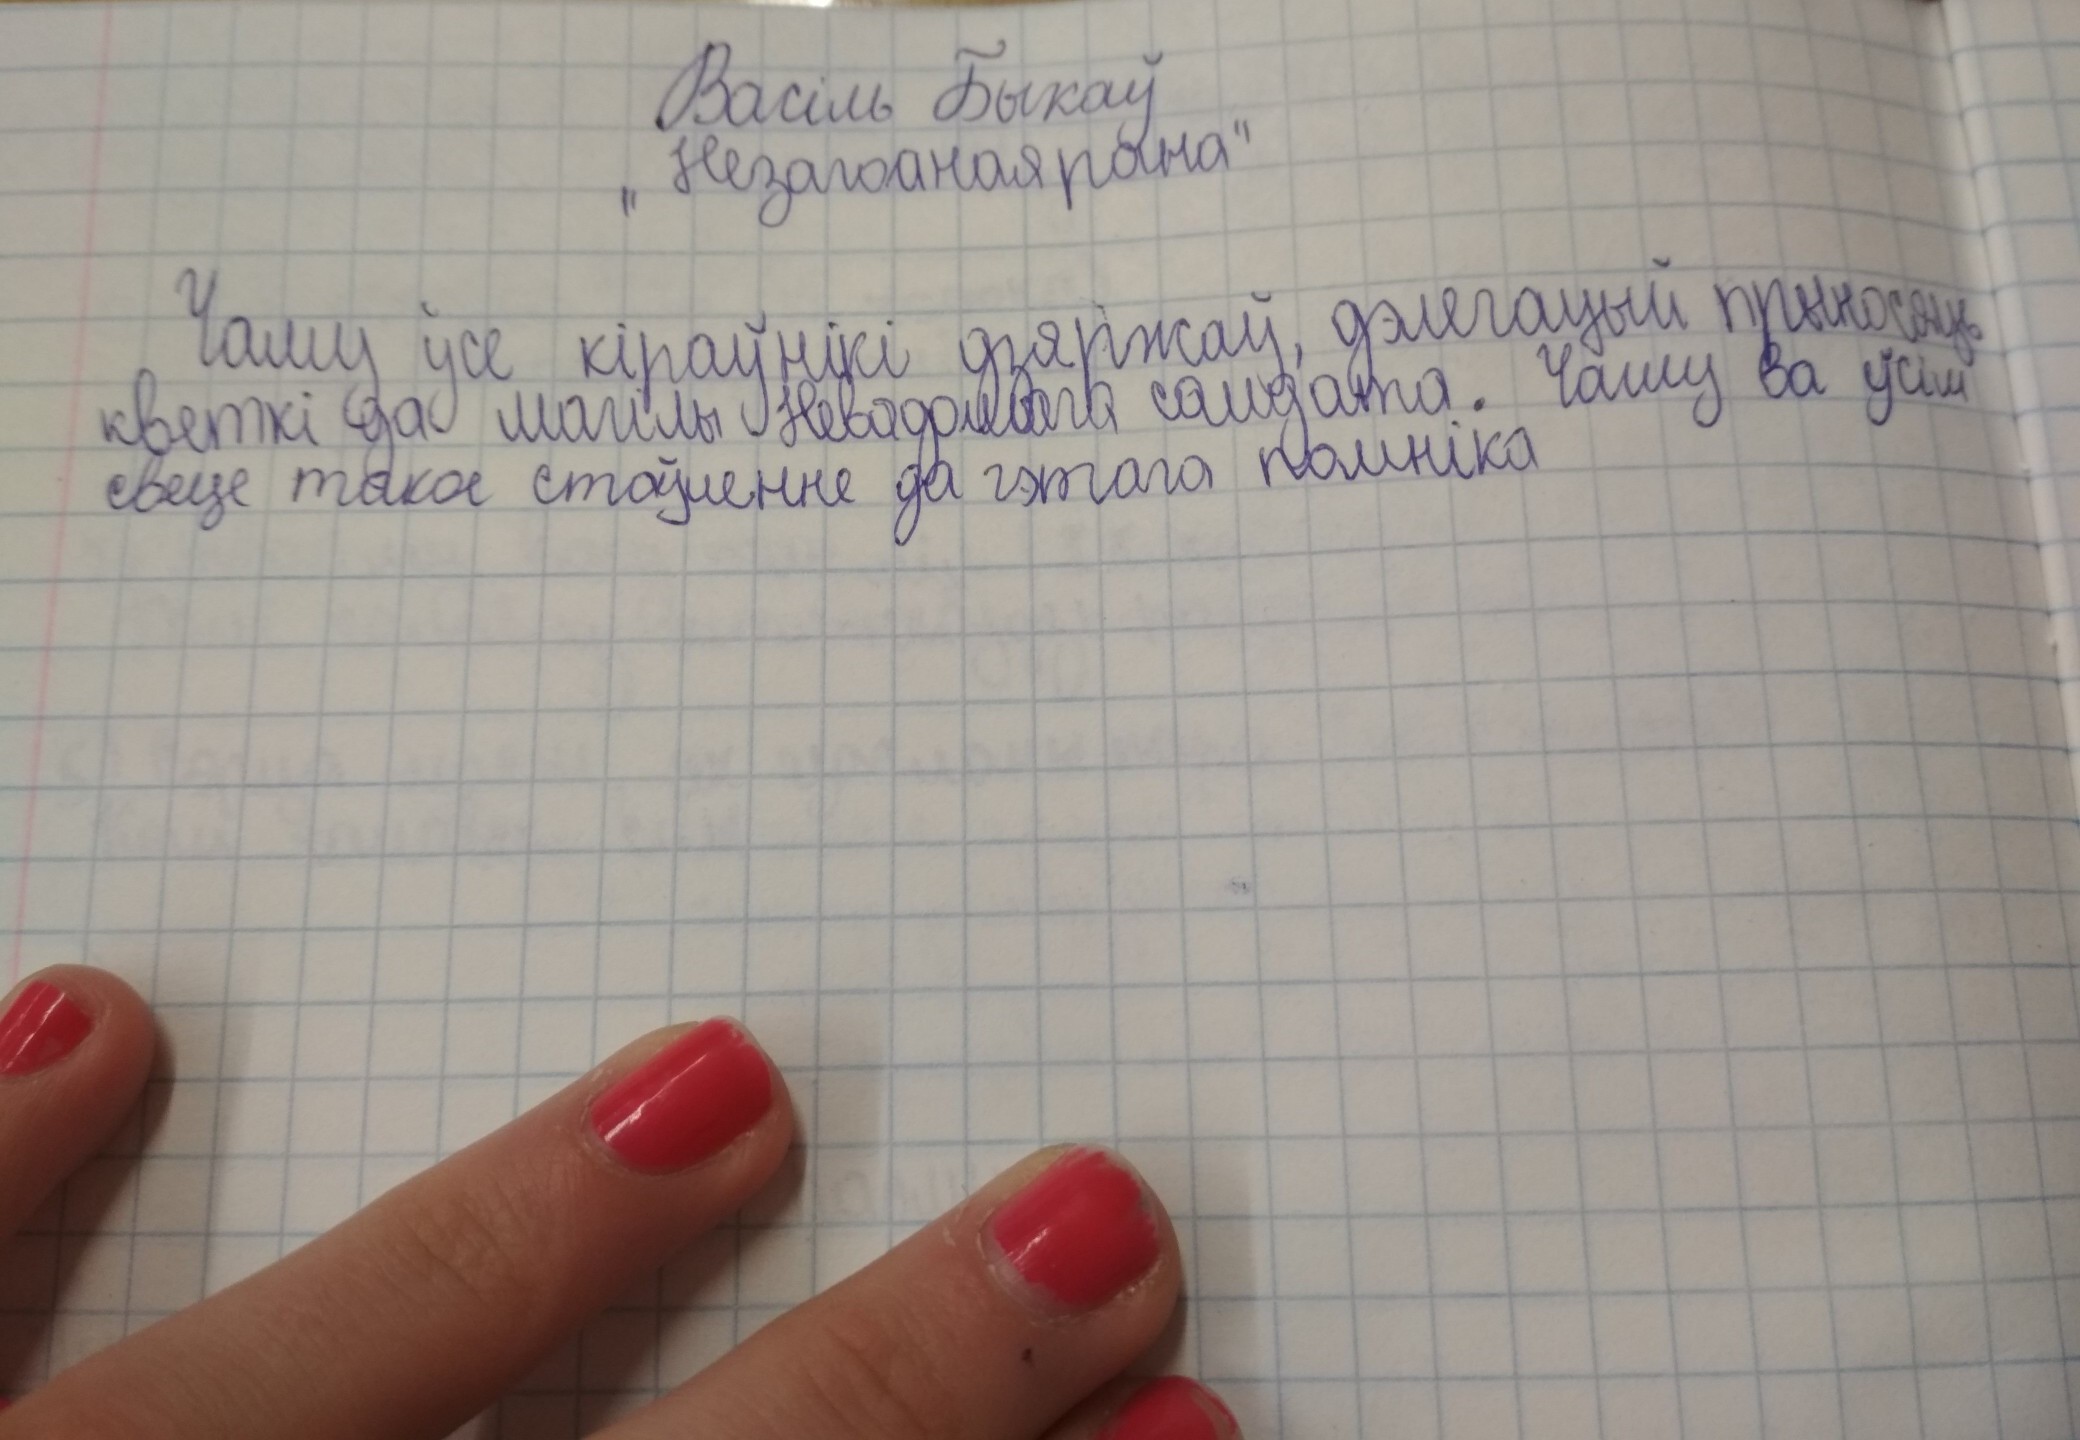 Васіль Быкаў
„Незагоаная рана"
Чаму ўсе кіраўнікі дзяржаў, дэлегацый прыносяць
кветкі да магілы Невядомага салдата. Чаму ва ўсім
свеце такое стаўленне да гэтага помніка